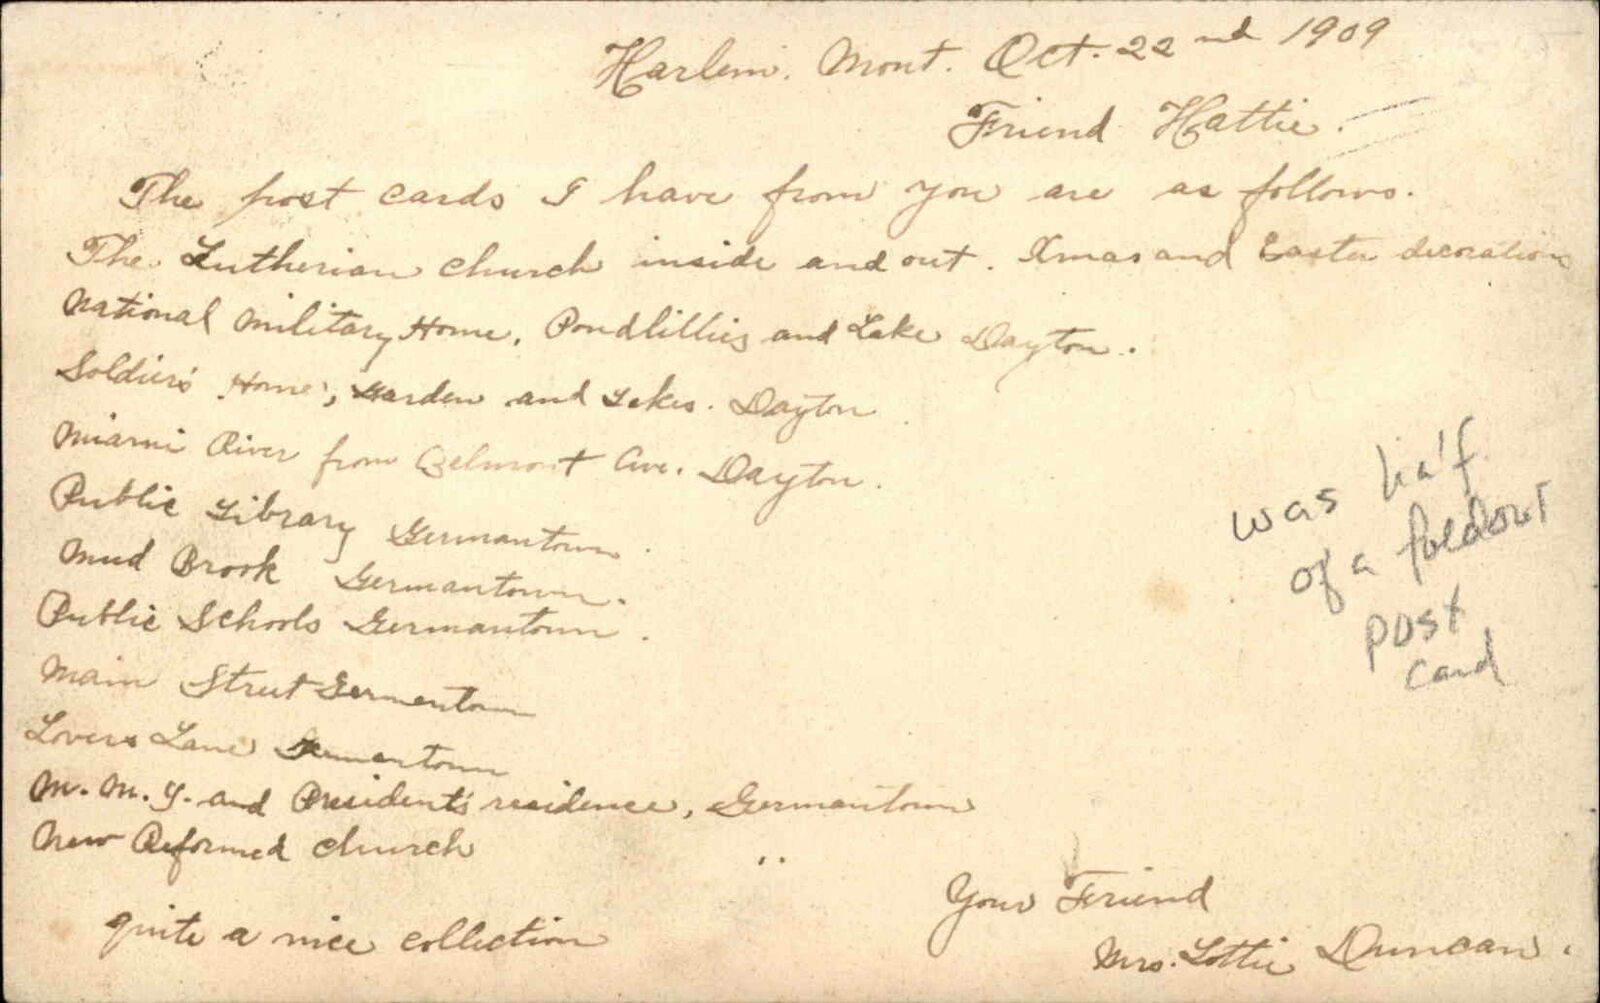 Harlem. Mont. Oct. 22nd 1909
Friend Hattie.
The post cards I have from you are as follows.
The Lutherian church inside and out. Xmas and Easter decorations
National Military Home, Pondlillies and Lake Dayton.
Soldier's Home, Garden and Lakes. Dayton
Miami River from Belmont Ave. Dayton.
Public Library Germantown.
Mud Brook Germantown.
Public Schools Germantown.
Main Street Germantown
Lovers Lane Germantown
M. M. I. and President's residence, Germantown
New Reformed church "
quite a nice collection
Your Friend
Mrs. Lottie Duncan.
was half
of a foldout
post
card